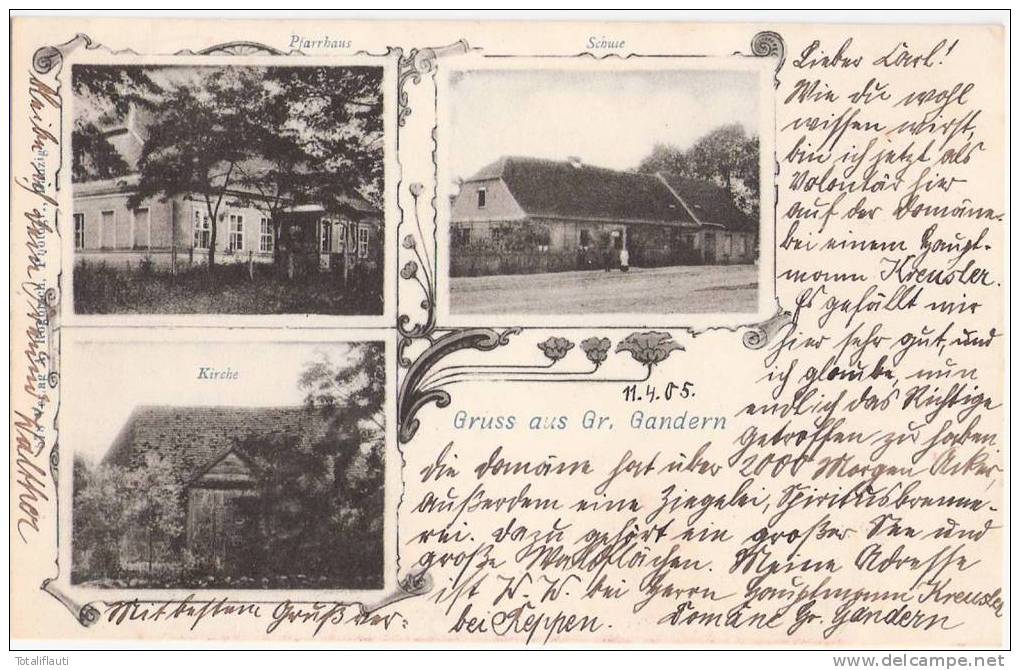 Pfarrhaus
Schule
Kirche
Gruss aus Gr. Gandern
11.4.05.
Lieber Carl!
Wie du wohl
wissen wirst,
bin ich jetzt als
Volontär hier
auf der Domäne
bei einem Haupt-
mann Kreusler.
Es gefällt mir
hier sehr gut, und
ich glaube, nun
endlich das Richtige
getroffen zu haben
die Domäne hat über 2000 Morgen Acker,
außerdem eine Ziegelei, Spiritusbrenne-
rei. Dazu gehört ein großer See und
große Waldflächen. Meine Adresse
ist W. W. bei Herrn Hauptmann Kreusler
Domäne Gr. Gandern
bei Reppen.
Mit bestem Gruß ver-
Walther
Totaliflauti
delcampe.net